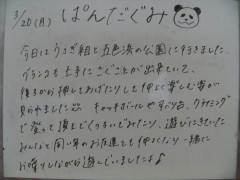 3/20(月) ぱんだぐみ
今日はうさぎ組と五色浜の公園に行きました。
ブランコも上手にこぐことが出来ていて、
後ろから押してあげたりして仲良く楽しむ姿が
見られました。キャッチボールやすべり台、クライミング
で登って頂上でくっついてみたり、遊びにきていた
みんなで同い年のお友達とも仲よくなり一緒に
お喋りしながら遊んでいましたよ♪